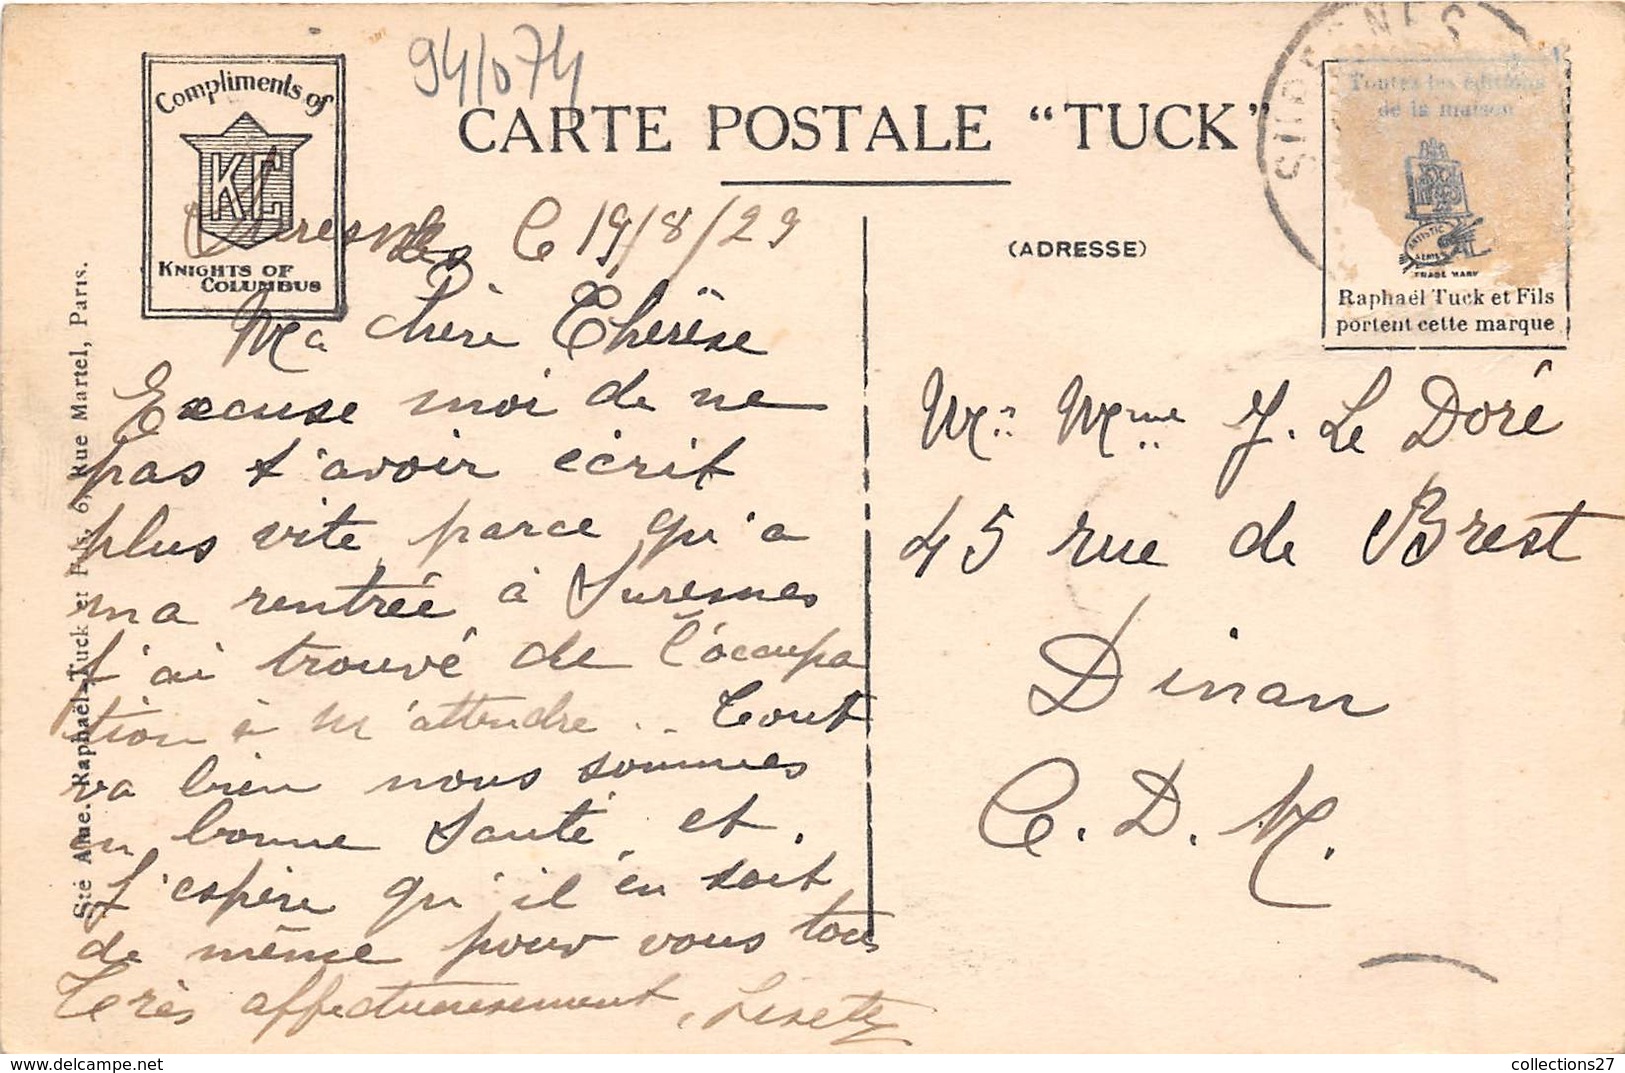 94/074
Compliments of
KC
KNIGHTS OF
COLUMBUS
CARTE POSTALE “TUCK”
SURESNES
Toutes les éditions
de la maison
ARTISTIC
SERIES
TRADE MARK
Raphaël Tuck et Fils
portent cette marque
(ADRESSE)
Sté Ame. Raphaël Tuck et Fils, 6, Rue Martel, Paris.
Suresnes le 19/8/29
Ma chère Thérèse
Excuse moi de ne
pas t'avoir écrit
plus vite, parce qu'a
ma rentrée à Suresnes
j'ai trouvé de l'occupa
tion à m'attendre .. Tout
va bien nous sommes
en bonne santé et,
j'espère qu'il en soit
de même pour vous tous
Très affectueusement, Lisete
Mr Mme J. Le Doré
45 rue de Brest
Dinan
C. D. N.
collections27